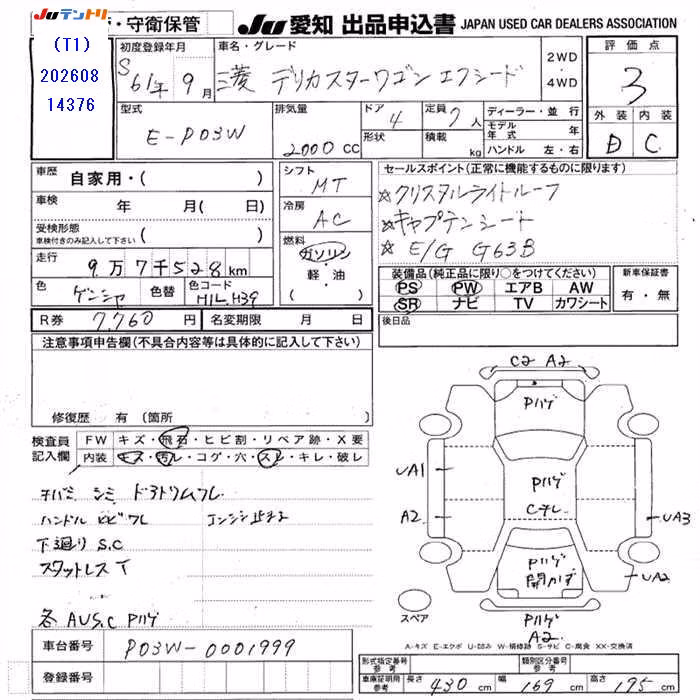 Juテントリ
・守衛保管 Ju 愛知 出品申込書 JAPAN USED CAR DEALERS ASSOCIATION
(T1)
202608
14376
初度登録年月 車名・グレード 2WD 4WD 評価点
S61年9月 三菱 デリカスターワゴン エクシード 3
型式 排気量 ドア 4 定員 7人 ディーラー・並行 外装 内装
E-P03W 2000CC 形状 積載 kg モデル年式 年 D C
ハンドル 左・右
車歴 自家用・( ) シフト MT セールスポイント(正常に機能するものに限ります)
車検 年 月( 日) 冷房 AC ☆クリスタルライトルーフ
受検形態 ( ) ☆キャプテンシート
車検付きのみ記入して下さい
走行 9万7千528km 燃料 ガソリン 軽・油 ( ) ☆E/G G63B
色 ゲンシャ 色替 色コード H1L.H39 装備品(純正品に限り○をつけてください) 新車保証書
PS PW エアB AW 有・無
SR ナビ TV カワシート
R券 7,760円 名変期限 月 日 後日品
注意事項申告欄(不具合内容等は具体的に記入して下さい)
修復歴 有(箇所
検査員記入欄 FW キズ・飛石・ヒビ割・リペア跡・X要
内装 キズ・汚レ・コゲ・穴・スレ・キレ・破レ
シミ
ハンドル ヒビワレ
下廻り S.C
スタットレス T
各 AUS.C Pハゲ
C2 A2
Pハゲ
UA1
Pハゲ
Cテレ
A2
UA3
Pハゲ
開かず
UA2
スペア
Pハゲ
A2
A-キズ E-エクボ U-凹み W-補修跡 S-サビ C-腐食 XX-交換済
車台番号 P03W-0001999
登録番号
形式指定番号 参考 類別区分番号 参考
車庫証明用 参考 長さ 430cm 幅 169cm 高さ 195cm